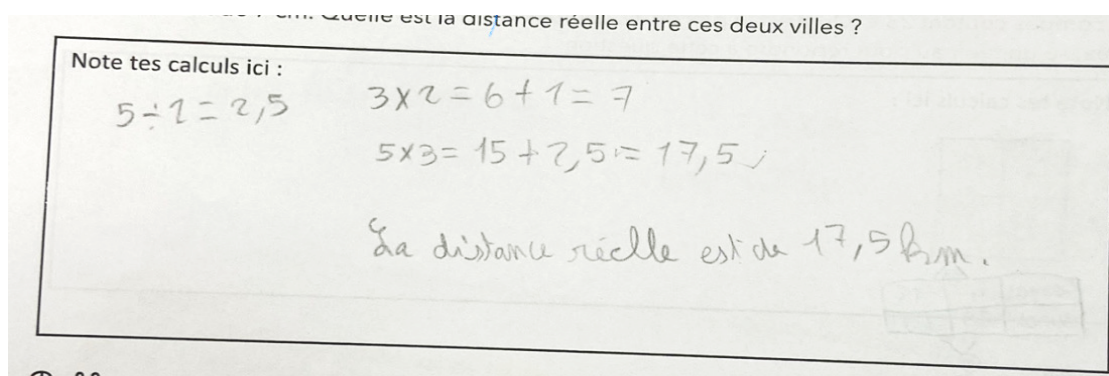 cm. Quelle est la distance réelle entre ces deux villes ?
Note tes calculs ici :
5÷2=2,5
3×2=6+1=7
5×3=15+2,5=17,5
La distance réelle est de 17,5 km.